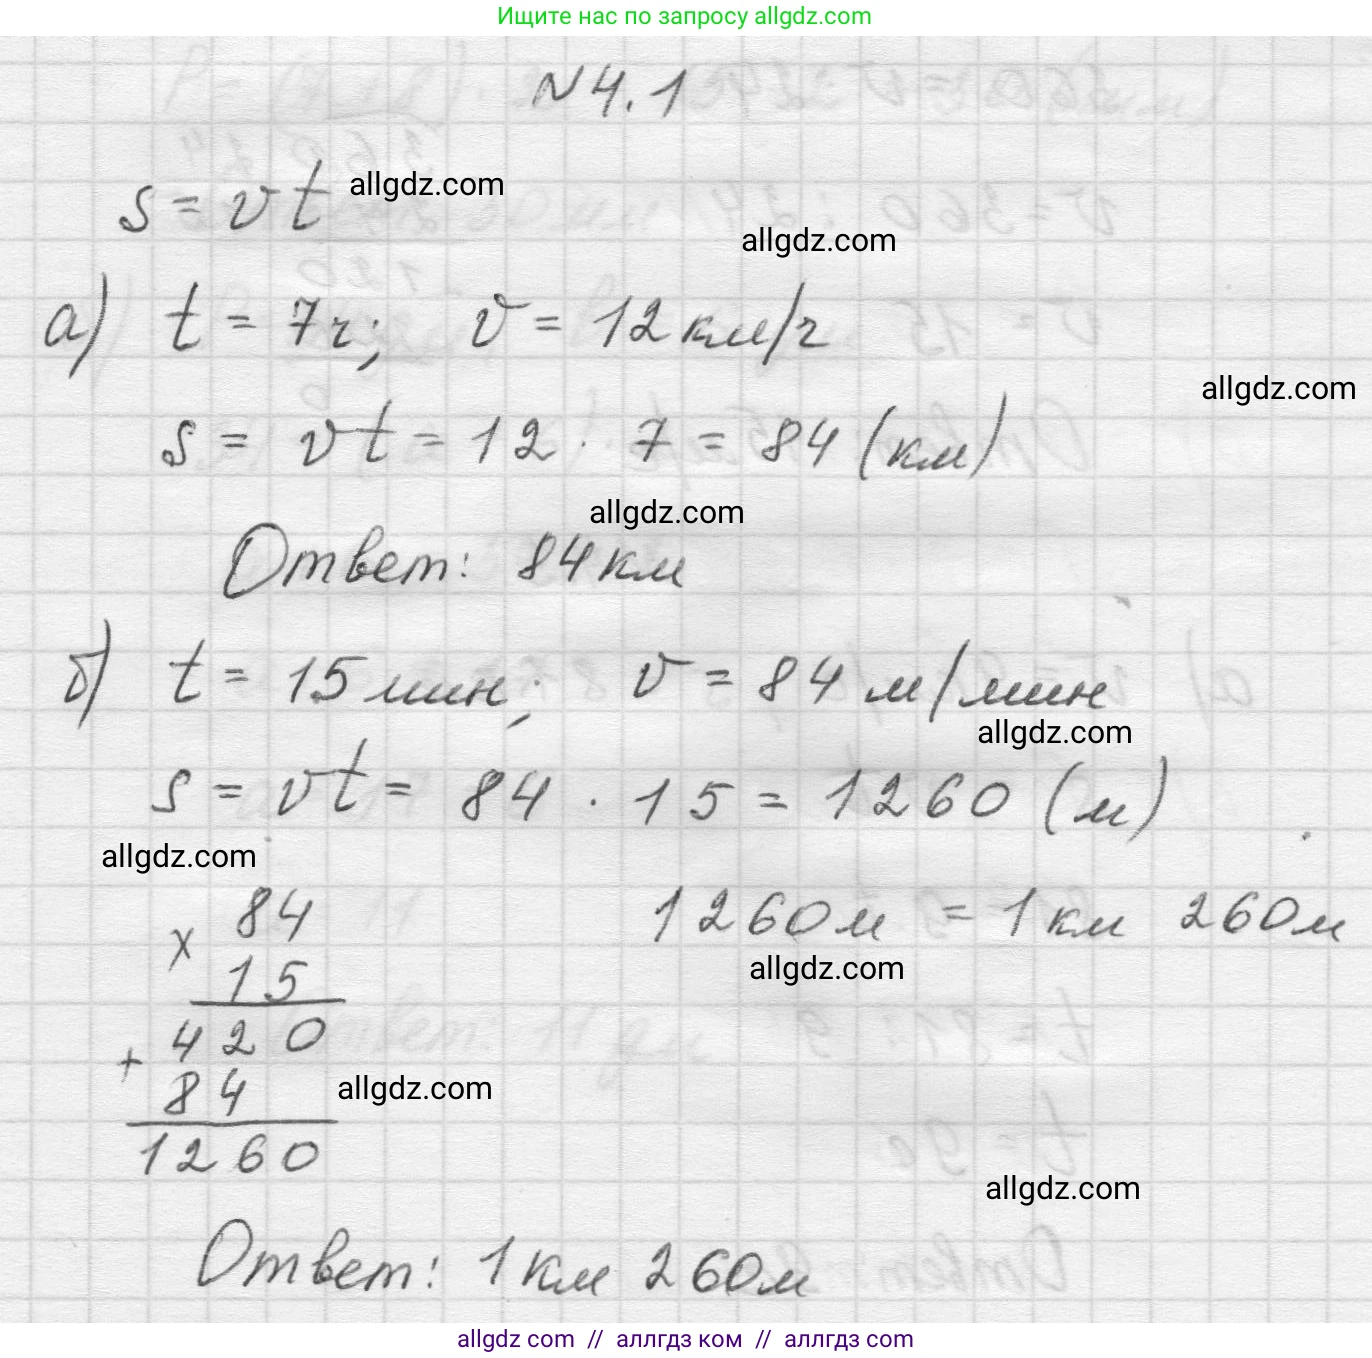 Ищите нас по запросу allgdz.com
№4.1
s = vt allgdz.com
allgdz.com
а) t = 7ч; v = 12 км/ч
allgdz.com
s = vt = 12 · 7 = 84 (км)
allgdz.com
Ответ: 84 км
б) t = 15 мин; v = 84 м/мин
allgdz.com
s = vt = 84 · 15 = 1260 (м)
allgdz.com
84
x
15
420
+
84
1260
1260м = 1 км 260м
allgdz.com
allgdz.com
allgdz.com
Ответ: 1 км 260м
allgdz com // аллгдз ком // аллгдз.com